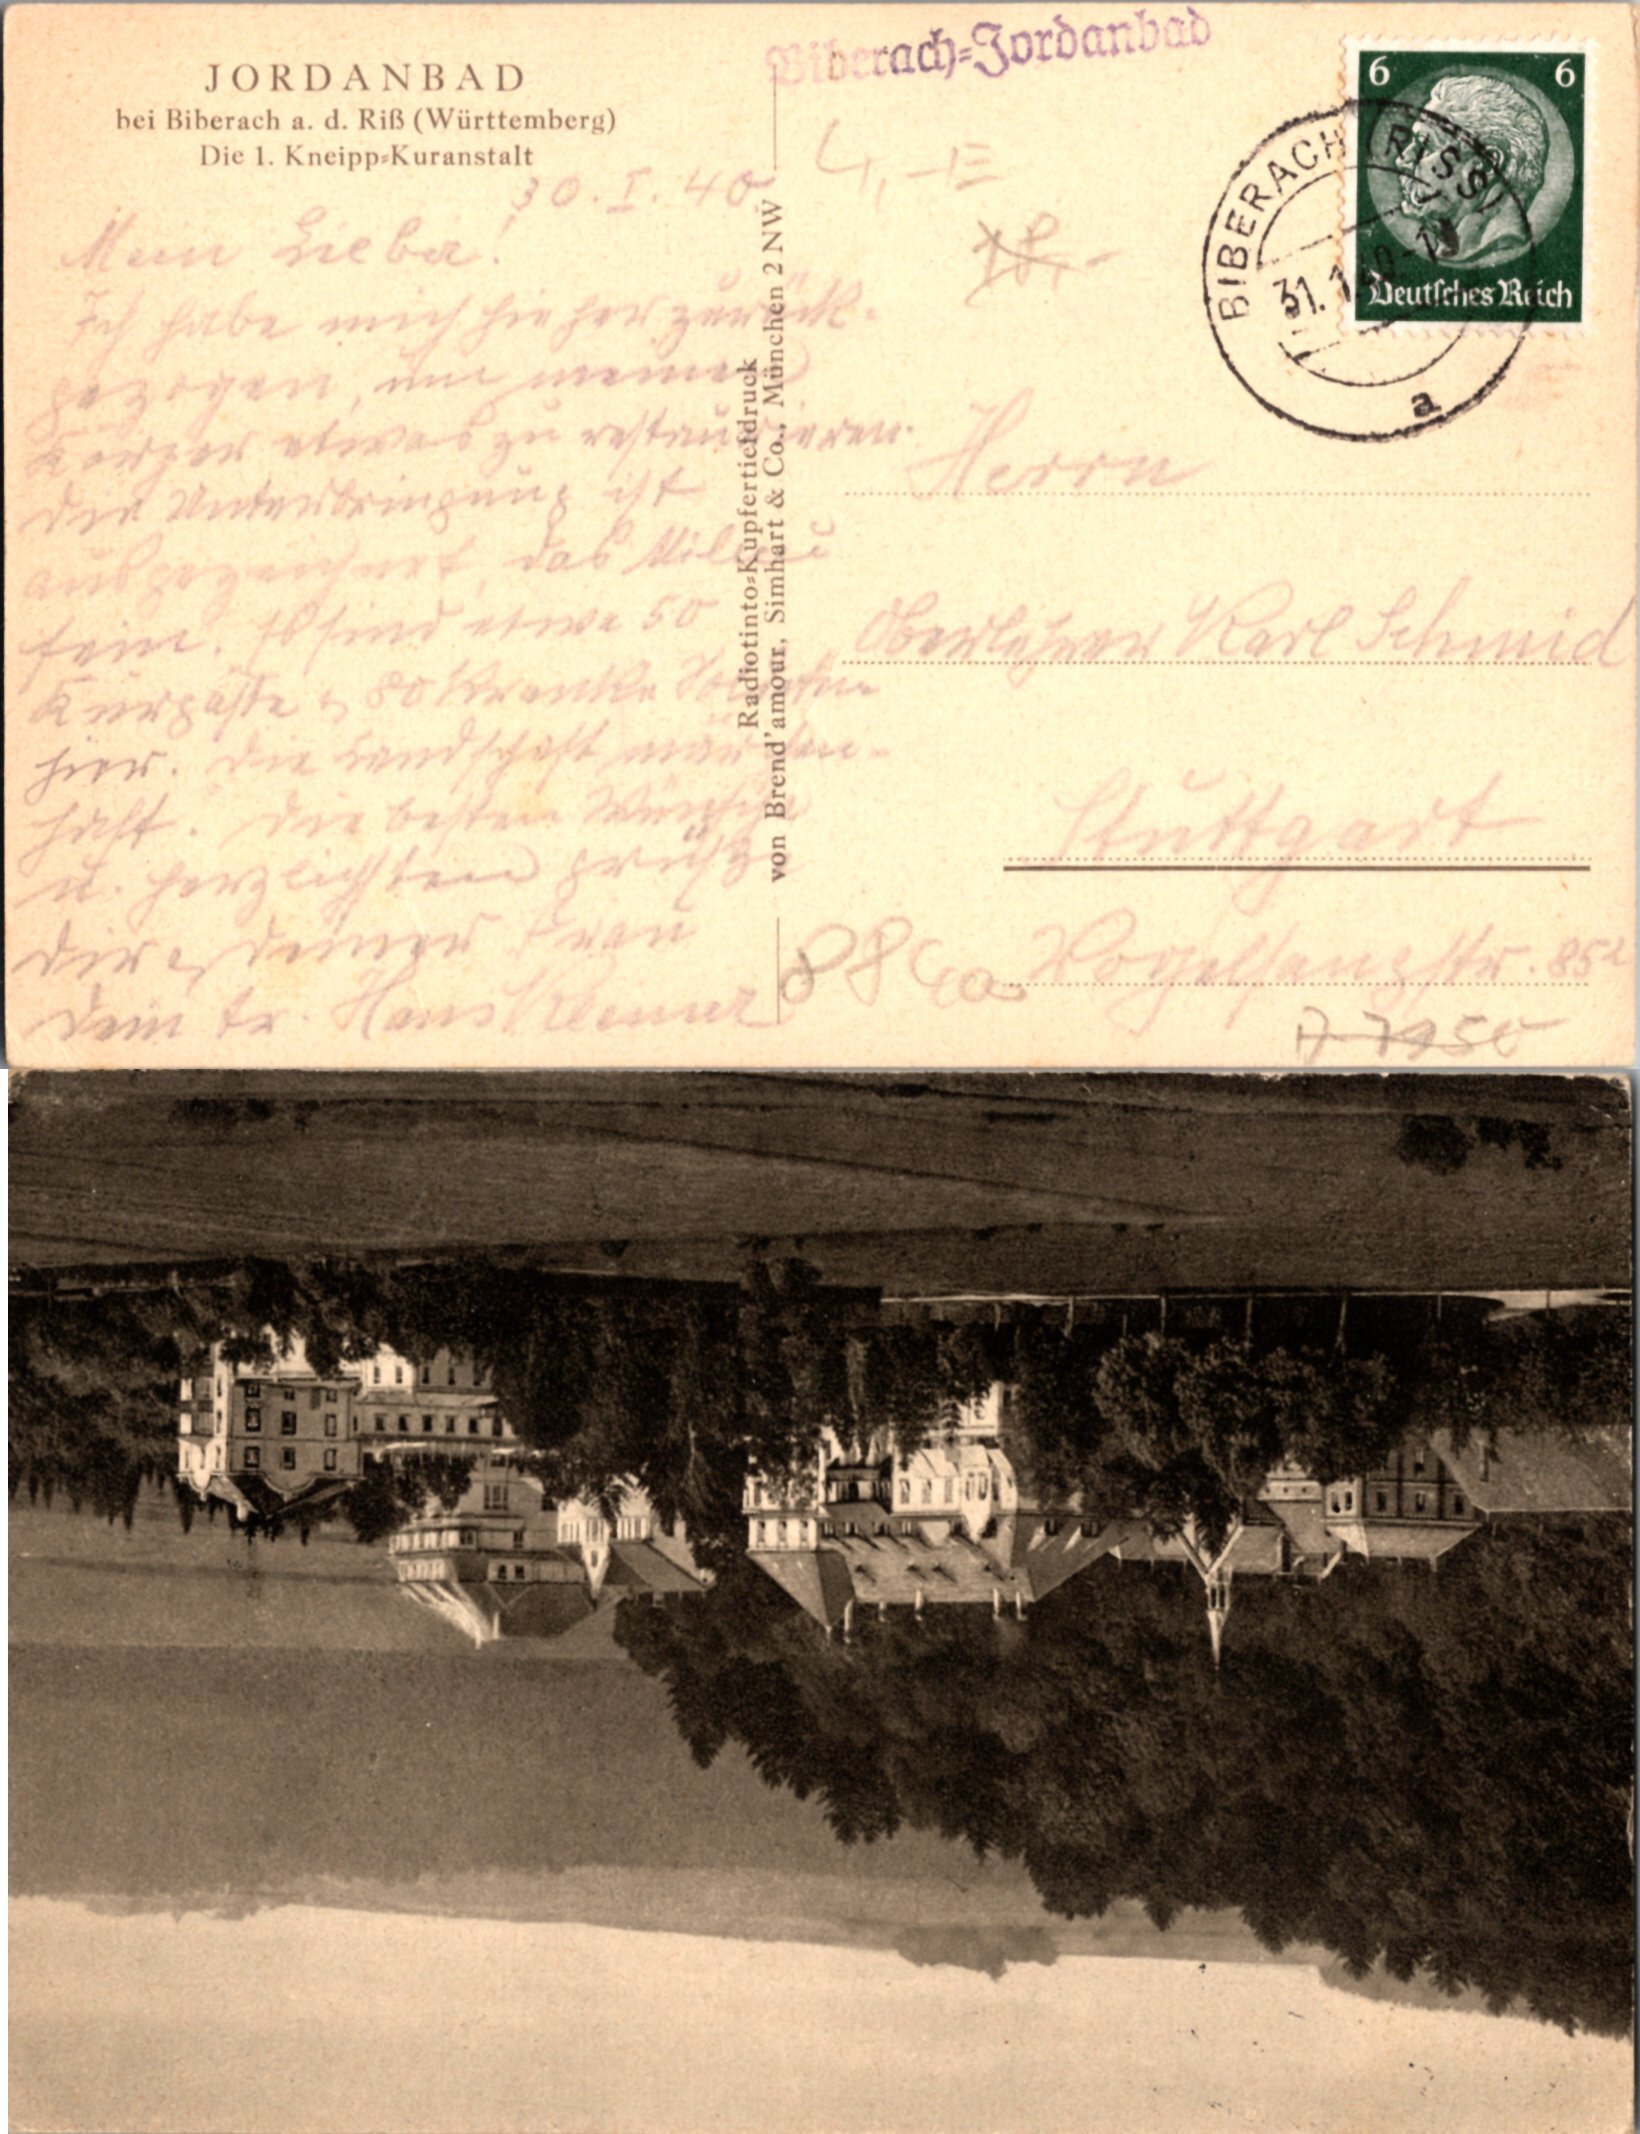 JORDANBAD
bei Biberach a. d. Riß (Württemberg)
Die 1. Kneipp=Kuranstalt
30. I. 40.
Mein Lieber!
Ich habe mich hieher zurück-
gezogen, um meinen
Körper etwas zu restaurieren.
Die Unterbringung ist
ausgezeichnet, das Milieu
fein. Es sind etwa 50
Kurgäste u. 80 Kranke Soldaten
hier. Die Landschaft märchen-
haft. Die besten Wünsche
u. herzlichsten Grüße
Dir u. Deiner Frau
Dein tr. Hans
Radiotinto=Kupfertiefdruck
von Brend'amour, Simhart & Co., München 2 NW
Biberach=Jordanbad
6 6
Deutsches Reich
BIBERACH (RISS)
31.1.40.-19
a
4,-
18,-
Herrn
Oberlehrer Karl Schmid
Stuttgart
Vogelsangstr. 85
88